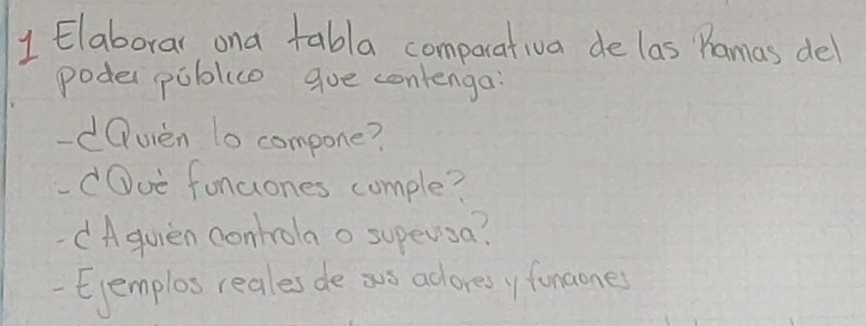 1 Elaborar una tabla comparativa de las Ramas del
poder público que contenga:
-¿Quién lo compone?
-¿Qué funciones cumple?
-¿A quién controla o supevisa?
-Ejemplos reales de sus actores y funciones